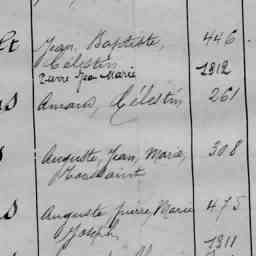 Jean, Baptiste, 446
Célestin
Pierre Jean Marie 1812
Amand, Célestin 261
Auguste, Jean, Marie, 308
Toussaint
Auguste, pierre, Marie 475
Joseph 1311